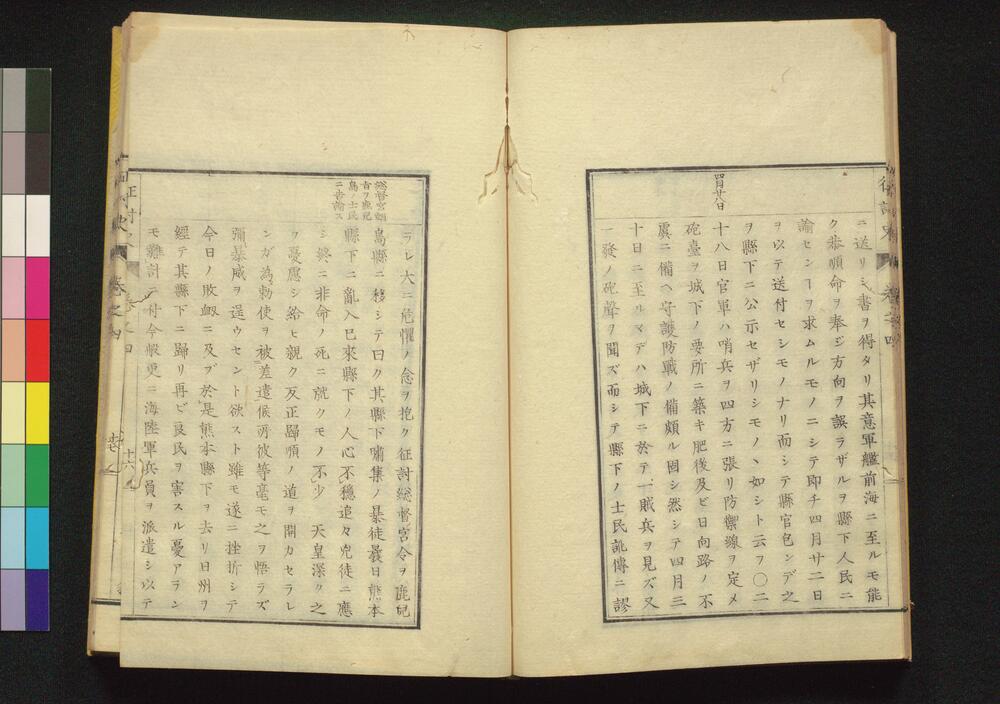 ニ送リシ書ヲ得タリ其意軍艦前海ニ至ルモ能
ク恭順命ヲ奉ジ方向ヲ誤ラザルヲ縣下人民ニ
諭センヿヲ求ムルモノニシテ即チ四月廿二日
ヲ以テ送付セシモノナリ而シテ縣官包ンデ之
ヲ縣下ニ公示セザリシモノヽ如シト云フ〇二
十八日官軍ハ哨兵ヲ四方ニ張リ防禦線ヲ定メ
砲臺ヲ城下ノ要所ニ築キ肥後及ビ日向路ノ不
虞ニ備ヘ守護防戰ノ備頗ル固シ然シテ四月三
十日ニ至ルマデハ城下ニ於テ一賊兵ヲ見ズ又
一發ノ砲聲ヲ聞ズ而シテ縣下ノ士民訛傳ニ謬
ラレ大ニ危懼ノ念ヲ抱ク征討総督宮令ヲ鹿兒
島縣ニ移シテ曰ク其縣下嘯集ノ暴徒曩日熊本
縣下ニ亂入已來縣下ノ人心不穩追々兇徒ニ應
シ終ニ非命ノ死ニ就クモノ不少 天皇深ク之
ヲ憂慮シ給ヒ親ク反正歸順ノ道ヲ開カセラレ
ンガ為勅使ヲ被差遣候所彼等毫モ之ヲ悟ラズ
彌暴威ヲ逞ウセント欲スト雖モ遂ニ挫折シテ
今日ノ敗衂ニ及ブ於是熊本縣下ヲ去リ日州ヲ
經テ其縣下ニ歸リ再ビ良民ヲ害スル憂アラン
モ難計ニ付今般更ニ海陸軍兵員ヲ派遣シ以テ
四月廿八日
総督宮
旨ヲ鹿兒
島ノ士民
ニ告諭ス
卷之四
十六